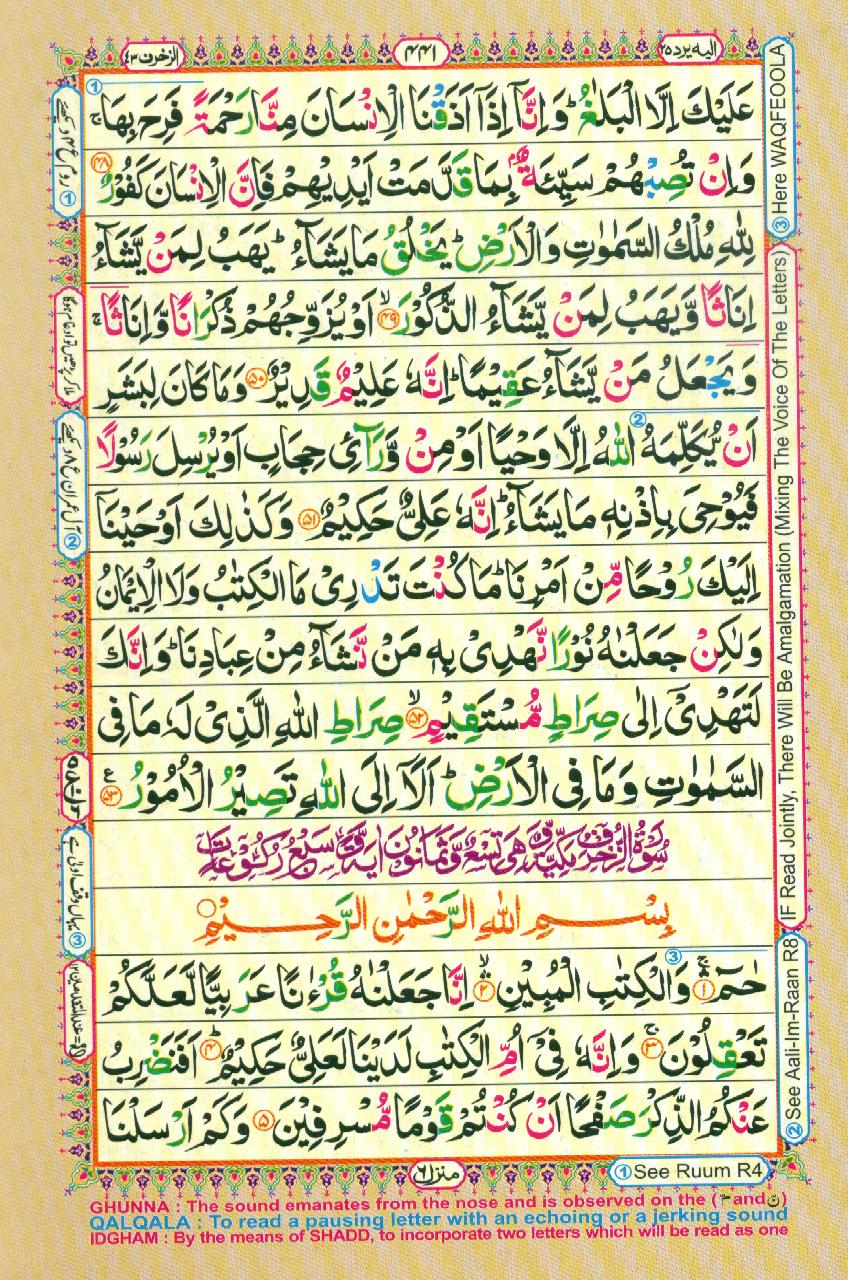 الیہ یرد ۲۵
۴۴۱
الزخرف ۴۳
عَلَيْكَ اِلَّا الْبَلٰغُ ؕ وَاِنَّاۤ اِذَاۤ اَذَقْنَا الْاِنْسَانَ مِنَّا رَحْمَةً فَرِحَ بِهَا ۚ
وَاِنْ تُصِبْهُمْ سَيِّئَةٌۢ بِمَا قَدَّمَتْ اَيْدِيْهِمْ فَاِنَّ الْاِنْسَانَ كَفُوْرٌ ۴۸
لِلّٰهِ مُلْكُ السَّمٰوٰتِ وَالْاَرْضِ ؕ يَخْلُقُ مَا يَشَآءُ ؕ يَهَبُ لِمَنْ يَّشَآءُ
اِنَاثًا وَّيَهَبُ لِمَنْ يَّشَآءُ الذُّكُوْرَ ۙ ۴۹ اَوْ يُزَوِّجُهُمْ ذُكْرَانًا وَّاِنَاثًا ۚ
وَيَجْعَلُ مَنْ يَّشَآءُ عَقِيْمًا ؕ اِنَّهٗ عَلِيْمٌ قَدِيْرٌ ۵۰ وَمَا كَانَ لِبَشَرٍ
اَنْ يُّكَلِّمَهُ اللّٰهُ اِلَّا وَحْيًا اَوْ مِنْ وَّرَآئِ حِجَابٍ اَوْ يُرْسِلَ رَسُوْلًا
فَيُوْحِىَ بِاِذْنِهٖ مَا يَشَآءُ ؕ اِنَّهٗ عَلِىٌّ حَكِيْمٌ ۵۱ وَكَذٰلِكَ اَوْحَيْنَاۤ
اِلَيْكَ رُوْحًا مِّنْ اَمْرِنَا ؕ مَا كُنْتَ تَدْرِىْ مَا الْكِتٰبُ وَلَا الْاِيْمَانُ
وَلٰكِنْ جَعَلْنٰهُ نُوْرًا نَّهْدِىْ بِهٖ مَنْ نَّشَآءُ مِنْ عِبَادِنَا ؕ وَاِنَّكَ
لَتَهْدِىْۤ اِلٰى صِرَاطٍ مُّسْتَقِيْمٍ ۙ ۵۲ صِرَاطِ اللّٰهِ الَّذِىْ لَهٗ مَا فِى
السَّمٰوٰتِ وَمَا فِى الْاَرْضِ ؕ اَلَاۤ اِلَى اللّٰهِ تَصِيْرُ الْاُمُوْرُ ۵۳ ع
سُوْرَةُ الزُّخْرُفِ مَكِّيَّةٌ وَّهِىَ تِسْعٌ وَّثَمَانُوْنَ اٰيَةً وَّسَبْعُ رُكُوْعَاتٍ
بِسْمِ اللّٰهِ الرَّحْمٰنِ الرَّحِيْمِ
حٰمٓ ۚ ۱ وَالْكِتٰبِ الْمُبِيْنِ ۙ ۲ اِنَّا جَعَلْنٰهُ قُرْءٰنًا عَرَبِيًّا لَّعَلَّكُمْ
تَعْقِلُوْنَ ۚ ۳ وَاِنَّهٗ فِىْۤ اُمِّ الْكِتٰبِ لَدَيْنَا لَعَلِىٌّ حَكِيْمٌ ؕ ۴ اَفَنَضْرِبُ
عَنْكُمُ الذِّكْرَ صَفْحًا اَنْ كُنْتُمْ قَوْمًا مُّسْرِفِيْنَ ۵ وَكَمْ اَرْسَلْنَا
منزل ۶
① See Ruum R4
③ Here WAQFEOOLA
IF Read Jointly, There Will Be Amalgamation (Mixing The Voice Of The Letters)
② See Aali-Im-Raan R8
① روم ع ۴ دیکھیے
ملا کر پڑھیں تو ادغام ہوگا
② آل عمران ع ۸ دیکھیے
③ یہاں وقف اولیٰ ہے
GHUNNA : The sound emanates from the nose and is observed on the (م and ن)
QALQALA : To read a pausing letter with an echoing or a jerking sound
IDGHAM : By the means of SHADD, to incorporate two letters which will be read as one